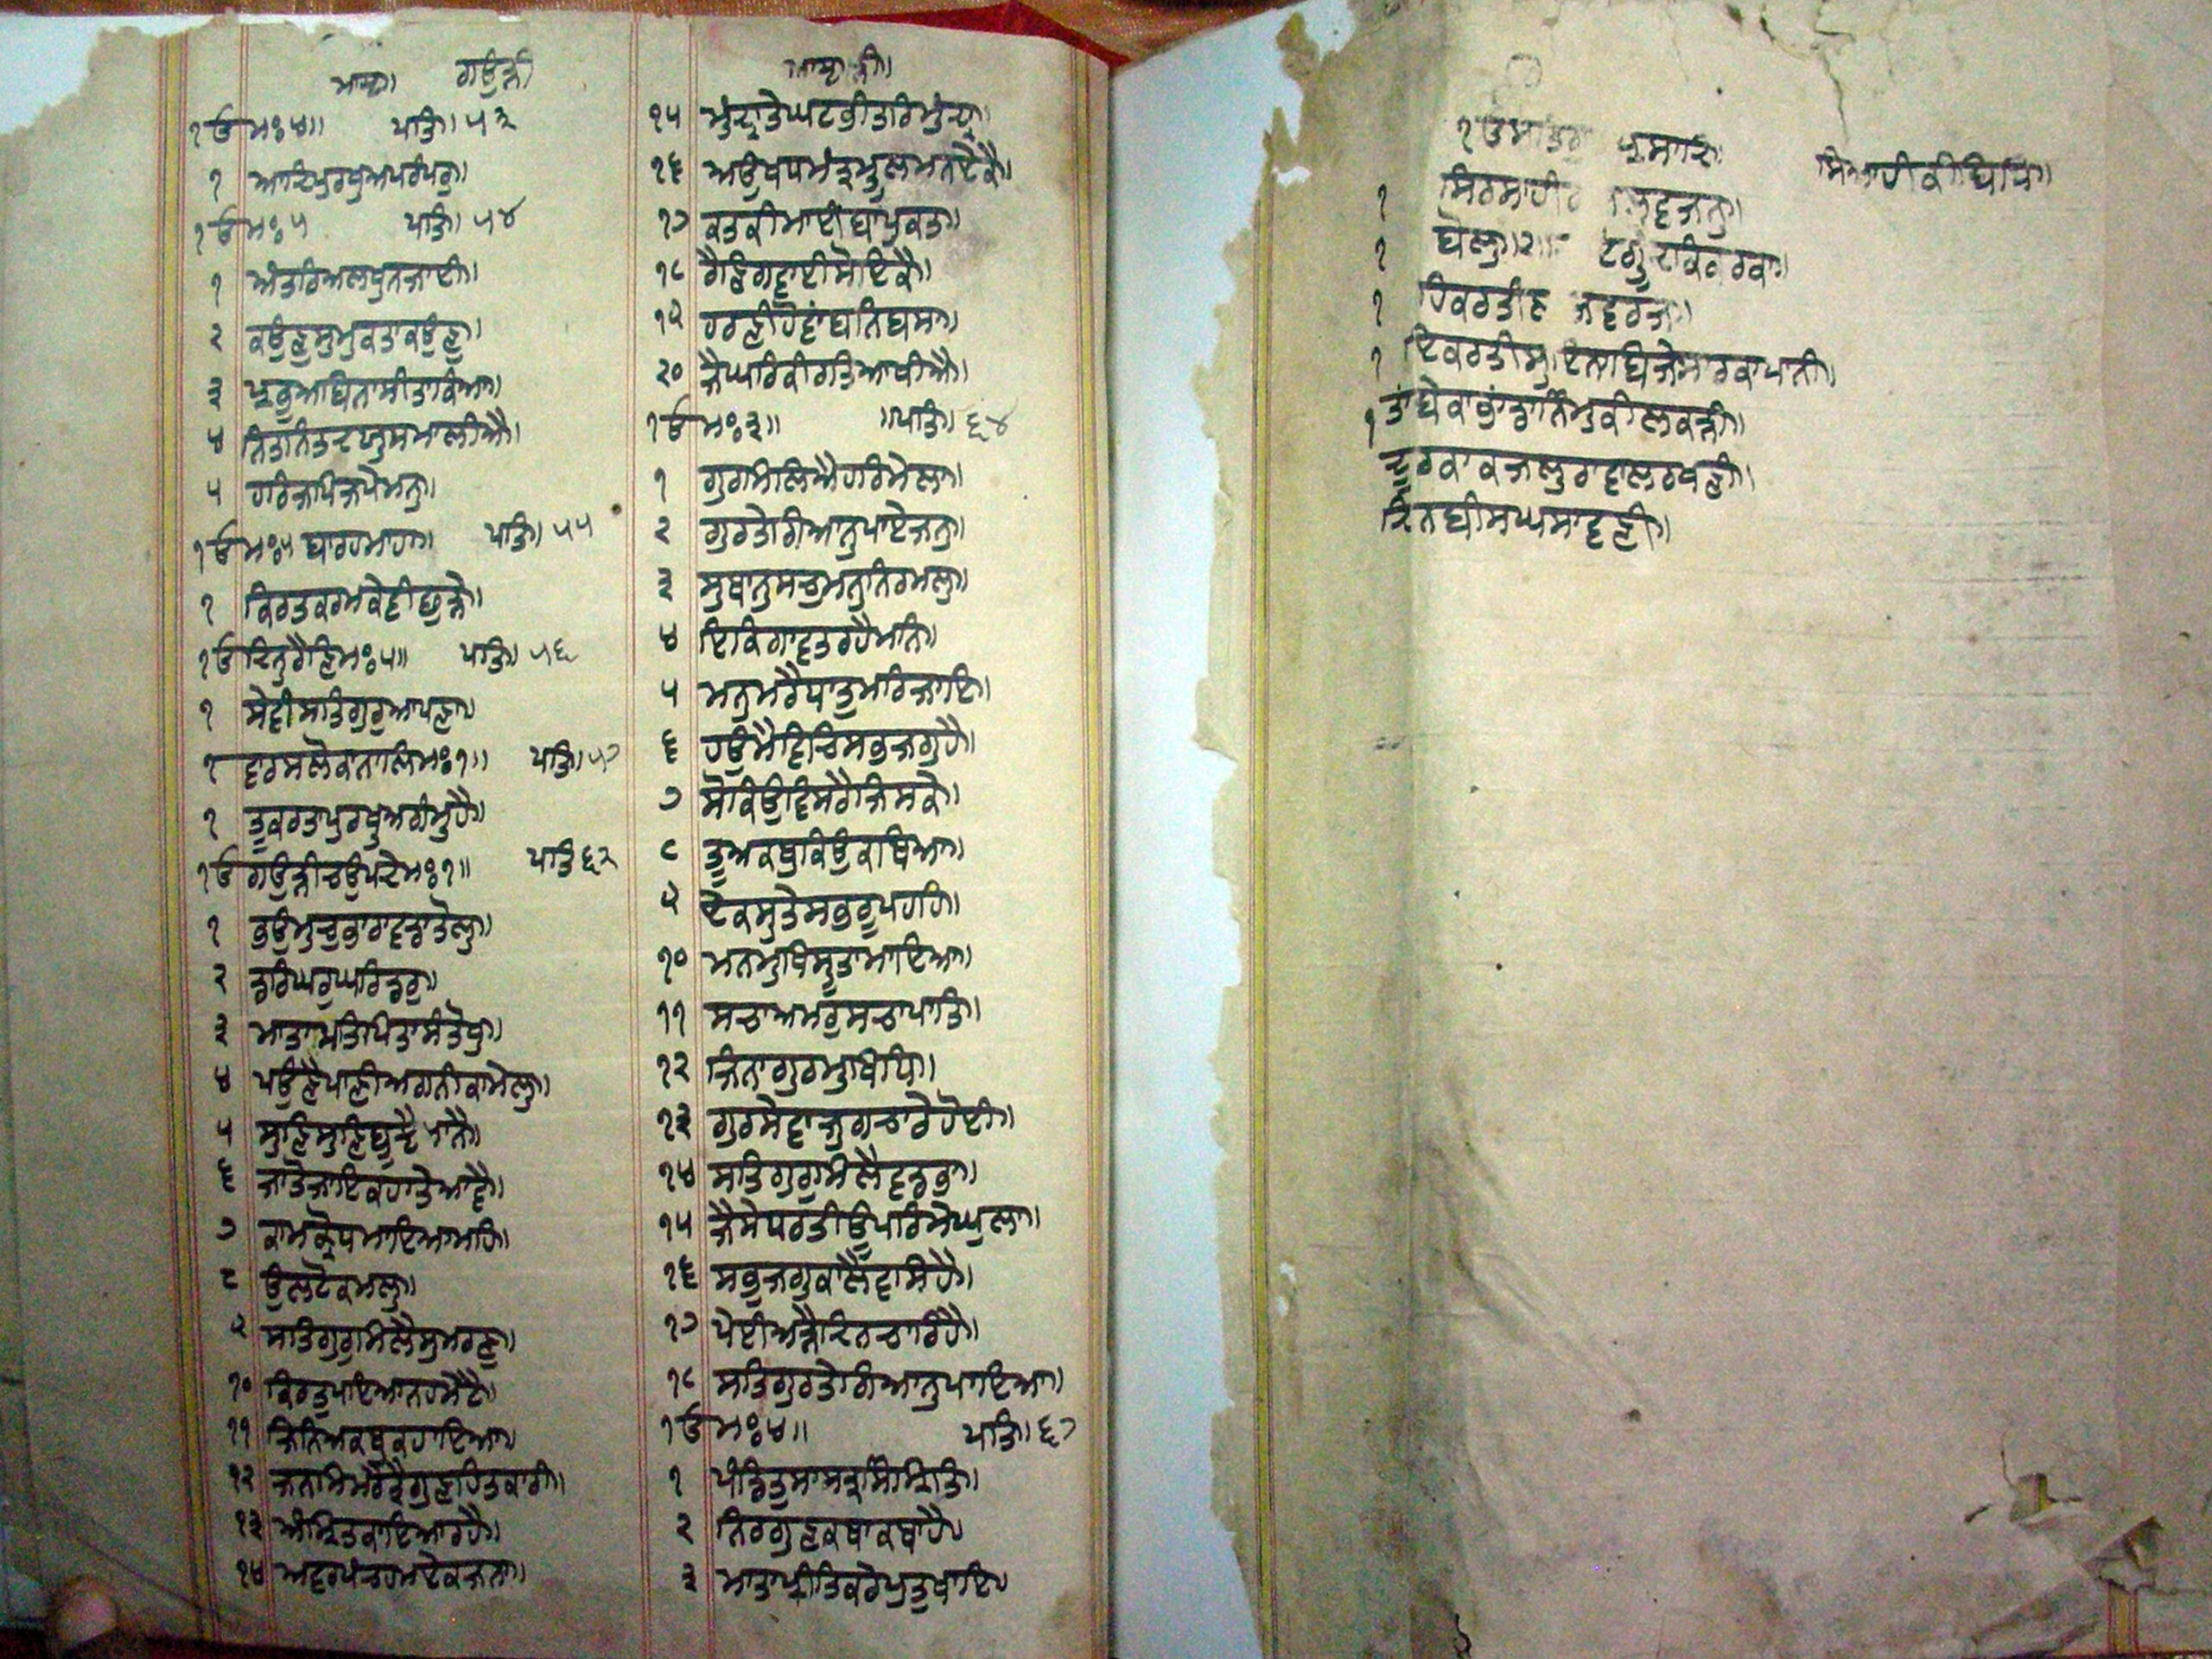 ਮਾਝ॥ ਗਉੜੀ
੧ਓ ਮਃ੪॥ ਪਤਿ॥ ੫੩
੧ ਆਦਿਪੁਰਖੁਅਪਰੰਪਰੁ॥
੧ਓ ਮਃ੫ ਪਤਿ॥ ੫੪
੧ ਅੰਤਰਿਅਲਖੁਨਜਾਈ॥
੨ ਕਉਣੁਸੁਮੁਕਤਾਕਉਣੁ॥
੩ ਪ੍ਰਭੁਅਬਿਨਾਸੀਤਾਕਿਆ॥
੪ ਨਿਤਨਿਤਦਯੁਸਮਾਲੀਐ॥
੫ ਹਰਿਜਪਿਜਪੇਮਨੁ॥
੧ਓ ਮਃ੫ ਬਾਰਹਮਾਹਾ॥ ਪਤਿ॥ ੫੫
੧ ਕਿਰਤਕਰਮਕੇਵੀਛੁੜੇ॥
੧ਓ ਦਿਨੁਰੈਣਿਮਃ੫॥ ਪਤਿ॥ ੫੬
੧ ਸੇਵੀਸਤਿਗੁਰੁਆਪਣਾ॥
੧ ਵਾਰਸਲੋਕਨਾਲਿਮਃ੧॥ ਪਤਿ॥ ੫੭
੧ ਤੂਕਰਤਾਪੁਰਖੁਅਗੰਮੁਹੈ॥
੧ਓ ਗਉੜੀਚਉਪਦੇਮਃ੧॥ ਪਤਿ ੬੨
੧ ਭਉਮੁਚੁਭਾਰਾਵਡਾਤੋਲੁ॥
੨ ਡਰਿਘਰੁਘਰਿਡਰੁ॥
੩ ਮਾਤਾਮਤਿਪਿਤਾਸੰਤੋਖੁ॥
੪ ਪਉਣੈਪਾਣੀਅਗਨੀਕਾਮੇਲੁ॥
੫ ਸੁਣਿਸੁਣਿਬੂਝੈਮਾਨੈ॥
੬ ਜਾਤੋਜਾਇਕਹਾਤੇਆਵੈ॥
੭ ਕਾਮਕ੍ਰੋਧਮਾਇਆਮਹਿ॥
੮ ਉਲਟੋਕਮਲੁ॥
੯ ਸਤਿਗੁਰੁਮਿਲੈਸੁਮਰਣੁ॥
੧੦ ਕਿਰਤੁਪਇਆਨਹਮੇਟੈ॥
੧੧ ਜਿਨਿਅਕਥੁਕਹਾਇਆ॥
੧੨ ਜਨਮਿਮਰੈਤ੍ਰੈਗੁਣਹਿਤਕਾਰੀ॥
੧੩ ਅੰਮ੍ਰਿਤਕਾਇਆਰਹੈ॥
੧੪ ਅਵਰਪੰਚਹਮਏਕਜਨਾ॥
੧੫ ਮੁੰਦ੍ਰਾਤੇਘਟਭੀਤਰਿਮੁੰਦ੍ਰਾ॥
੧੬ ਅਉਖਧਮੰਤ੍ਰਮੂਲਮਨਏਕੈ॥
੧੭ ਕਤਕੀਮਾਈਬਾਪੁਕਤ॥
੧੮ ਰੈਣਿਗਵਾਈਸੋਇਕੈ॥
੧੯ ਹਰਣੀਹੋਵਾਂਬਨਿਬਸਾ॥
੨੦ ਜੈਘਰਿਕੀਰਤਿਆਖੀਐ॥
੧ਓ ਮਃ੩॥ ॥ਪਤਿ॥ ੬੪
੧ ਗੁਰਮਿਲਿਐਹਰਿਮੇਲਾ॥
੨ ਗੁਰਤੇਗਿਆਨੁਪਾਏਜਨੁ॥
੩ ਸੁਥਾਨੁਸਚੁਮਨੁਨਿਰਮਲੁ॥
੪ ਇਕਿਗਾਵਤਰਹੈਮਨਿ॥
੫ ਮਨੁਮਰੈਧਾਤੁਮਰਿਜਾਇ॥
੬ ਹਉਮੈਵਿਚਿਸਭੁਜਗੁਹੈ॥
੭ ਸੋਕਿਉਵਿਸਰੈਜਿਸਕੇ॥
੮ ਤੂਅਕਥੁਕਿਉਕਥਿਆ॥
੯ ਏਕਸੁਤੇਸਭਰੂਪਹਹਿ॥
੧੦ ਮਨਮੁਖਿਸੂਤਾਮਾਇਆ॥
੧੧ ਸਚਾਅਮਰੁਸਚਾਪਾਤਿ॥
੧੨ ਜਿਨਾਗੁਰਮੁਖਿਧਿ॥
੧੩ ਗੁਰਸੇਵਾਜੁਗਚਾਰੇਹੋਈ॥
੧੪ ਸਤਿਗੁਰੁਮਿਲੈਵਡਭਾ॥
੧੫ ਜੈਸੇਧਰਤੀਊਪਰਿਮੇਘੁਲਾ॥
੧੬ ਸਭੁਜਗੁਕਾਲੈਵਸਿਹੈ॥
੧੭ ਪੇਈਅੜੈਦਿਨਚਾਰਿਹੈ॥
੧੮ ਸਤਿਗੁਰਤੇਗਿਆਨੁਪਾਇਆ॥
੧ਓ ਮਃ੪॥ ਪਤਿ॥ ੬੭
੧ ਪੰਡਿਤੁਸਾਸਤ੍ਰਸਿਮ੍ਰਿਤਿ॥
੨ ਨਿਰਗੁਣਕਥਾਕਥਾਹੈ॥
੩ ਮਾਤਾਪ੍ਰੀਤਿਕਰੇਪੁਤੁਖਾਇ॥
ਸਿਆਹੀਕੀਬਿਧਿ॥
੧
੧ ਬੋਲੁ॥੨॥
੧
੧
੧ ਤਾਂਬੇਕਾਭਾਂਡਾਨਿੰਮੁਕੀਲਕੜੀ॥
ਦੂਰਕਾਕਜਲੁਰਾਵਾਲਰਖਣੀ॥
ਦਿਨਬੀਸਘਸਾਵਣੀ॥